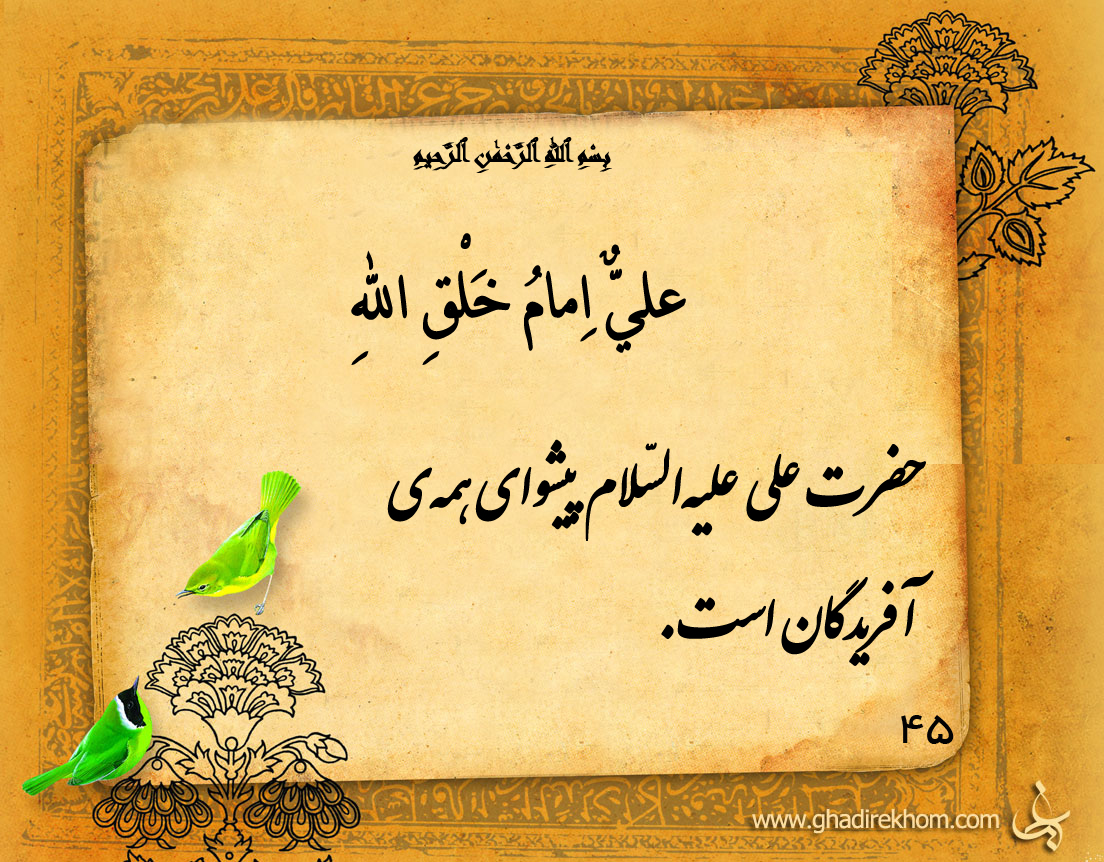 بِسْمِ ٱللَّهِ ٱلرَّحْمَٰنِ ٱلرَّحِيمِ
عليٌّ اِمامُ خَلْقِ اللهِ
حضرت علی علیه السّلام پیشوای همه ی
آفریدگان است.
۴۵
www.ghadirekhom.com